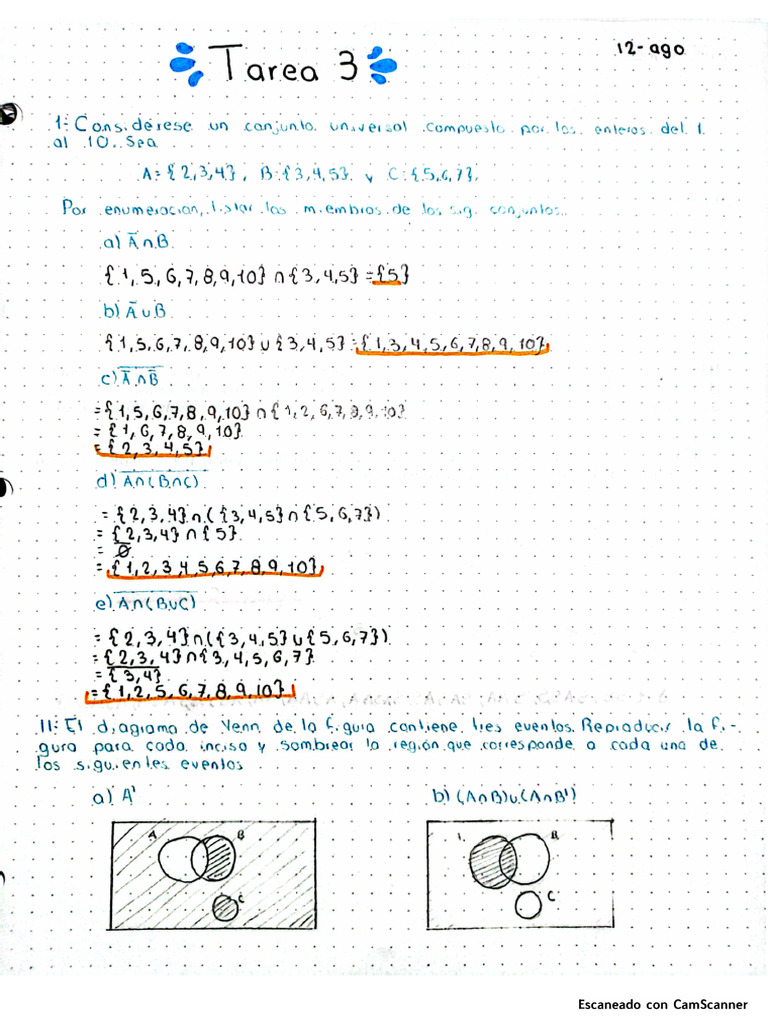 Tarea 3
12-ago
1: Considérese un conjunto universal compuesto por los enteros del 1
al 10. Sea
A={2,3,4}, B:{3,4,5} y C:{5,6,7}.
Por enumeración, listar los miembros de los sig. conjuntos.
a) A̅∩B
{1,5,6,7,8,9,10}∩{3,4,5}={5}
b) A̅∪B
{1,5,6,7,8,9,10}∪{3,4,5}={1,3,4,5,6,7,8,9,10}
c) \overline{A̅∩B̅}
={1,5,6,7,8,9,10}∩{1,2,6,7,8,9,10}
={1,6,7,8,9,10}
={2,3,4,5}
d) \overline{A∩(B∩C)}
={2,3,4}∩({3,4,5}∩{5,6,7})
={2,3,4}∩{5}
=\overline{∅}
={1,2,3,4,5,6,7,8,9,10}
e) \overline{A∩(B∪C)}
={2,3,4}∩({3,4,5}∪{5,6,7})
={2,3,4}∩{3,4,5,6,7}
=\overline{{3,4}}
={1,2,5,6,7,8,9,10}
11: El diagrama de Venn de la figura contiene tres eventos. Reproducir la fi-
gura para cada inciso y sombrear la región que corresponde a cada uno de
los siguientes eventos
a) A' b) (A∩B)∪(A∩B')
A B B
C C
Escaneado con CamScanner